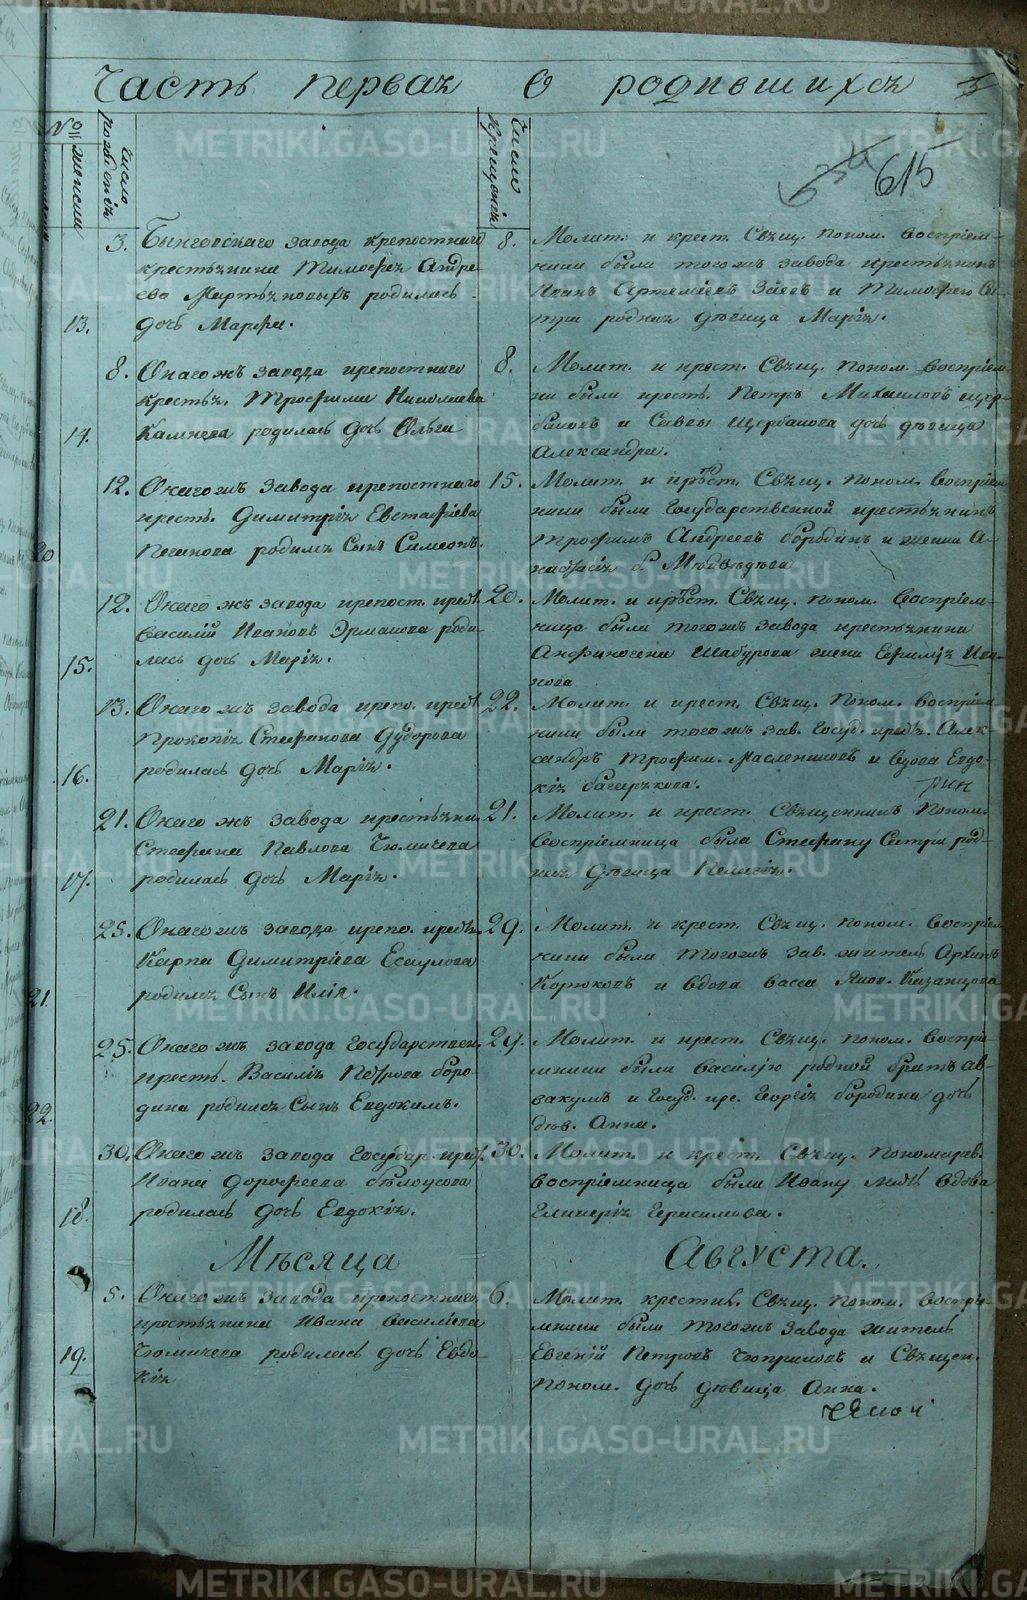 Часть первая О родившихся
615
№
женска
число рождения
Число крещения
13.
3. Бынговскаго завода крепостнаго
крестьянина Тимофея Андре-
ева Мартьяновыхъ родилась
дочь Марфа.
8. Молит. и крест. Свящ. поном. восприем-
ники были тогожъ завода крестьянинъ
Иванъ Артемиевъ Заевъ и Тимофею Се-
тра родная девица Мария.
14.
8. Онагожъ завода крепостнаго
крестья. Трофима Николаева
Камнева родилась дочь Ольга
8. Молит. и крест. Свящ. поном. восприем-
ки были кресть. Петръ Михаиловъ Щер-
баковъ и Савы Щербакова дочь девица
Александра.
20
12. Онагожъ завода крепостнаго
кресть. Димитрия Евстафиева
родился Сынъ Симеонъ.
15. Молит. и крест. Свящ. поном. восприем
ники были Государственной крестьянинъ
Трофимъ Андреевъ бородинъ и жена А-
настасия
15.
12. Онаго жъ завода крепост. крест.
Василий Ивановъ Ермакова роди-
лась дочь Мария.
20. Молит. и крест. Свящ. поном. восприем-
ница были тогожъ завода крестьянина
Анфиногена Шабурова жена Ефимия Ива-
нова
16.
13. Онаго жъ завода крепо. крест.
Прокопия Стефанова Дударова
родилась дочь Мария.
22. Молит. и крест. Свящ. поном. восприем-
ники были тогожъ зав. Госуд. крест. Алек
сандръ Трофим. Маслениковъ и вдова Евдо-
кия
17.
21. Онаго жъ завода крестьяни.
Стефана Павлова Чюмичева
родилась дочь Мария.
21. Молит. и крест. Священникъ поном.
восприемница была Стефану Сетра род-
ная девица Пелагия.
21.
25. Онагожъ завода крепо. крест.
Карпа Димитриева Есаулова
родился Сынъ Илия.
29. Молит. и крест. Свящ. поном. восприем
ники были тогожъ зав. житель Архипъ
Корюковъ и вдова васса Яков. Казанцова
22.
25. Онагожъ завода Государствен.
кресть. Василия Петрова боро-
дина родился Сынъ Евдокимъ.
29. Молит. и крест. Свящ. поном. воспри-
мники были василью родной братъ ав-
вакумъ и Госуд. кре. Георгия бородина дочь
дев. Анна.
18.
30. Онагожъ завода Государ. крест.
Ивана дорофеева белоусова
родилась дочь Евдокия.
30. Молит. и крест. Свящ. пономарев.
восприемница были Ивану мать вдова
Гликерия Герасимова.
Месяца Августа.
19.
5. Онагожъ завода крепостнаго
крестьянина Ивана василиева
Чюмичева родилась дочь Евдо-
кия
6. Молит. крестив. Свящ. поном. воспри-
мники были тогожъ завода житель
Евгений Петровъ Чюприковъ и Священ.
поном. дочь девица Анна.
METRIKI.GASO-URAL.RU